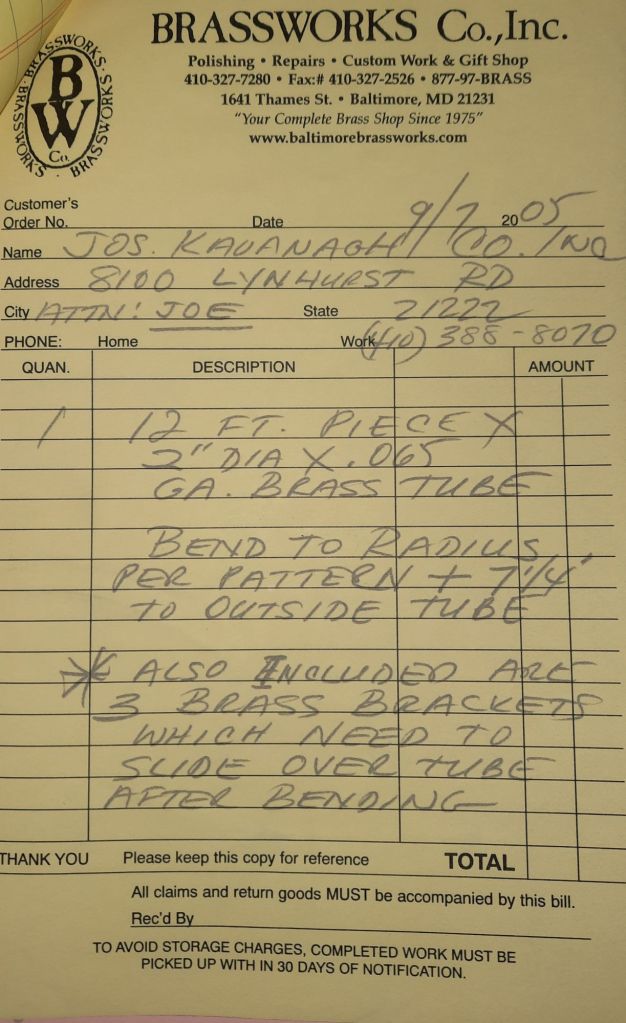 BRASSWORKS Co., Inc.
Polishing • Repairs • Custom Work & Gift Shop
410-327-7280 • Fax:# 410-327-2526 • 877-97-BRASS
1641 Thames St. • Baltimore, MD 21231
"Your Complete Brass Shop Since 1975"
www.baltimorebrassworks.com
BRASSWORKS · BRASSWORKS · BRASSWORKS ·
B
W
Co.
Customer's
Order No. Date 9/7 2005
Name JOS. KAVANAGH CO. INC
Address 8100 LYNHURST RD
City ATTN: JOE State 21222
PHONE: Home Work (410) 388-8070
QUAN. DESCRIPTION AMOUNT
1 12 FT. PIECE X
2" DIA X .065
GA. BRASS TUBE
BEND TO RADIUS
PER PATTERN + 7 1/4'
TO OUTSIDE TUBE
* ALSO INCLUDED ARE
3 BRASS BRACKETS
WHICH NEED TO
SLIDE OVER TUBE
AFTER BENDING
THANK YOU Please keep this copy for reference TOTAL
All claims and return goods MUST be accompanied by this bill.
Rec'd By
TO AVOID STORAGE CHARGES, COMPLETED WORK MUST BE
PICKED UP WITH IN 30 DAYS OF NOTIFICATION.